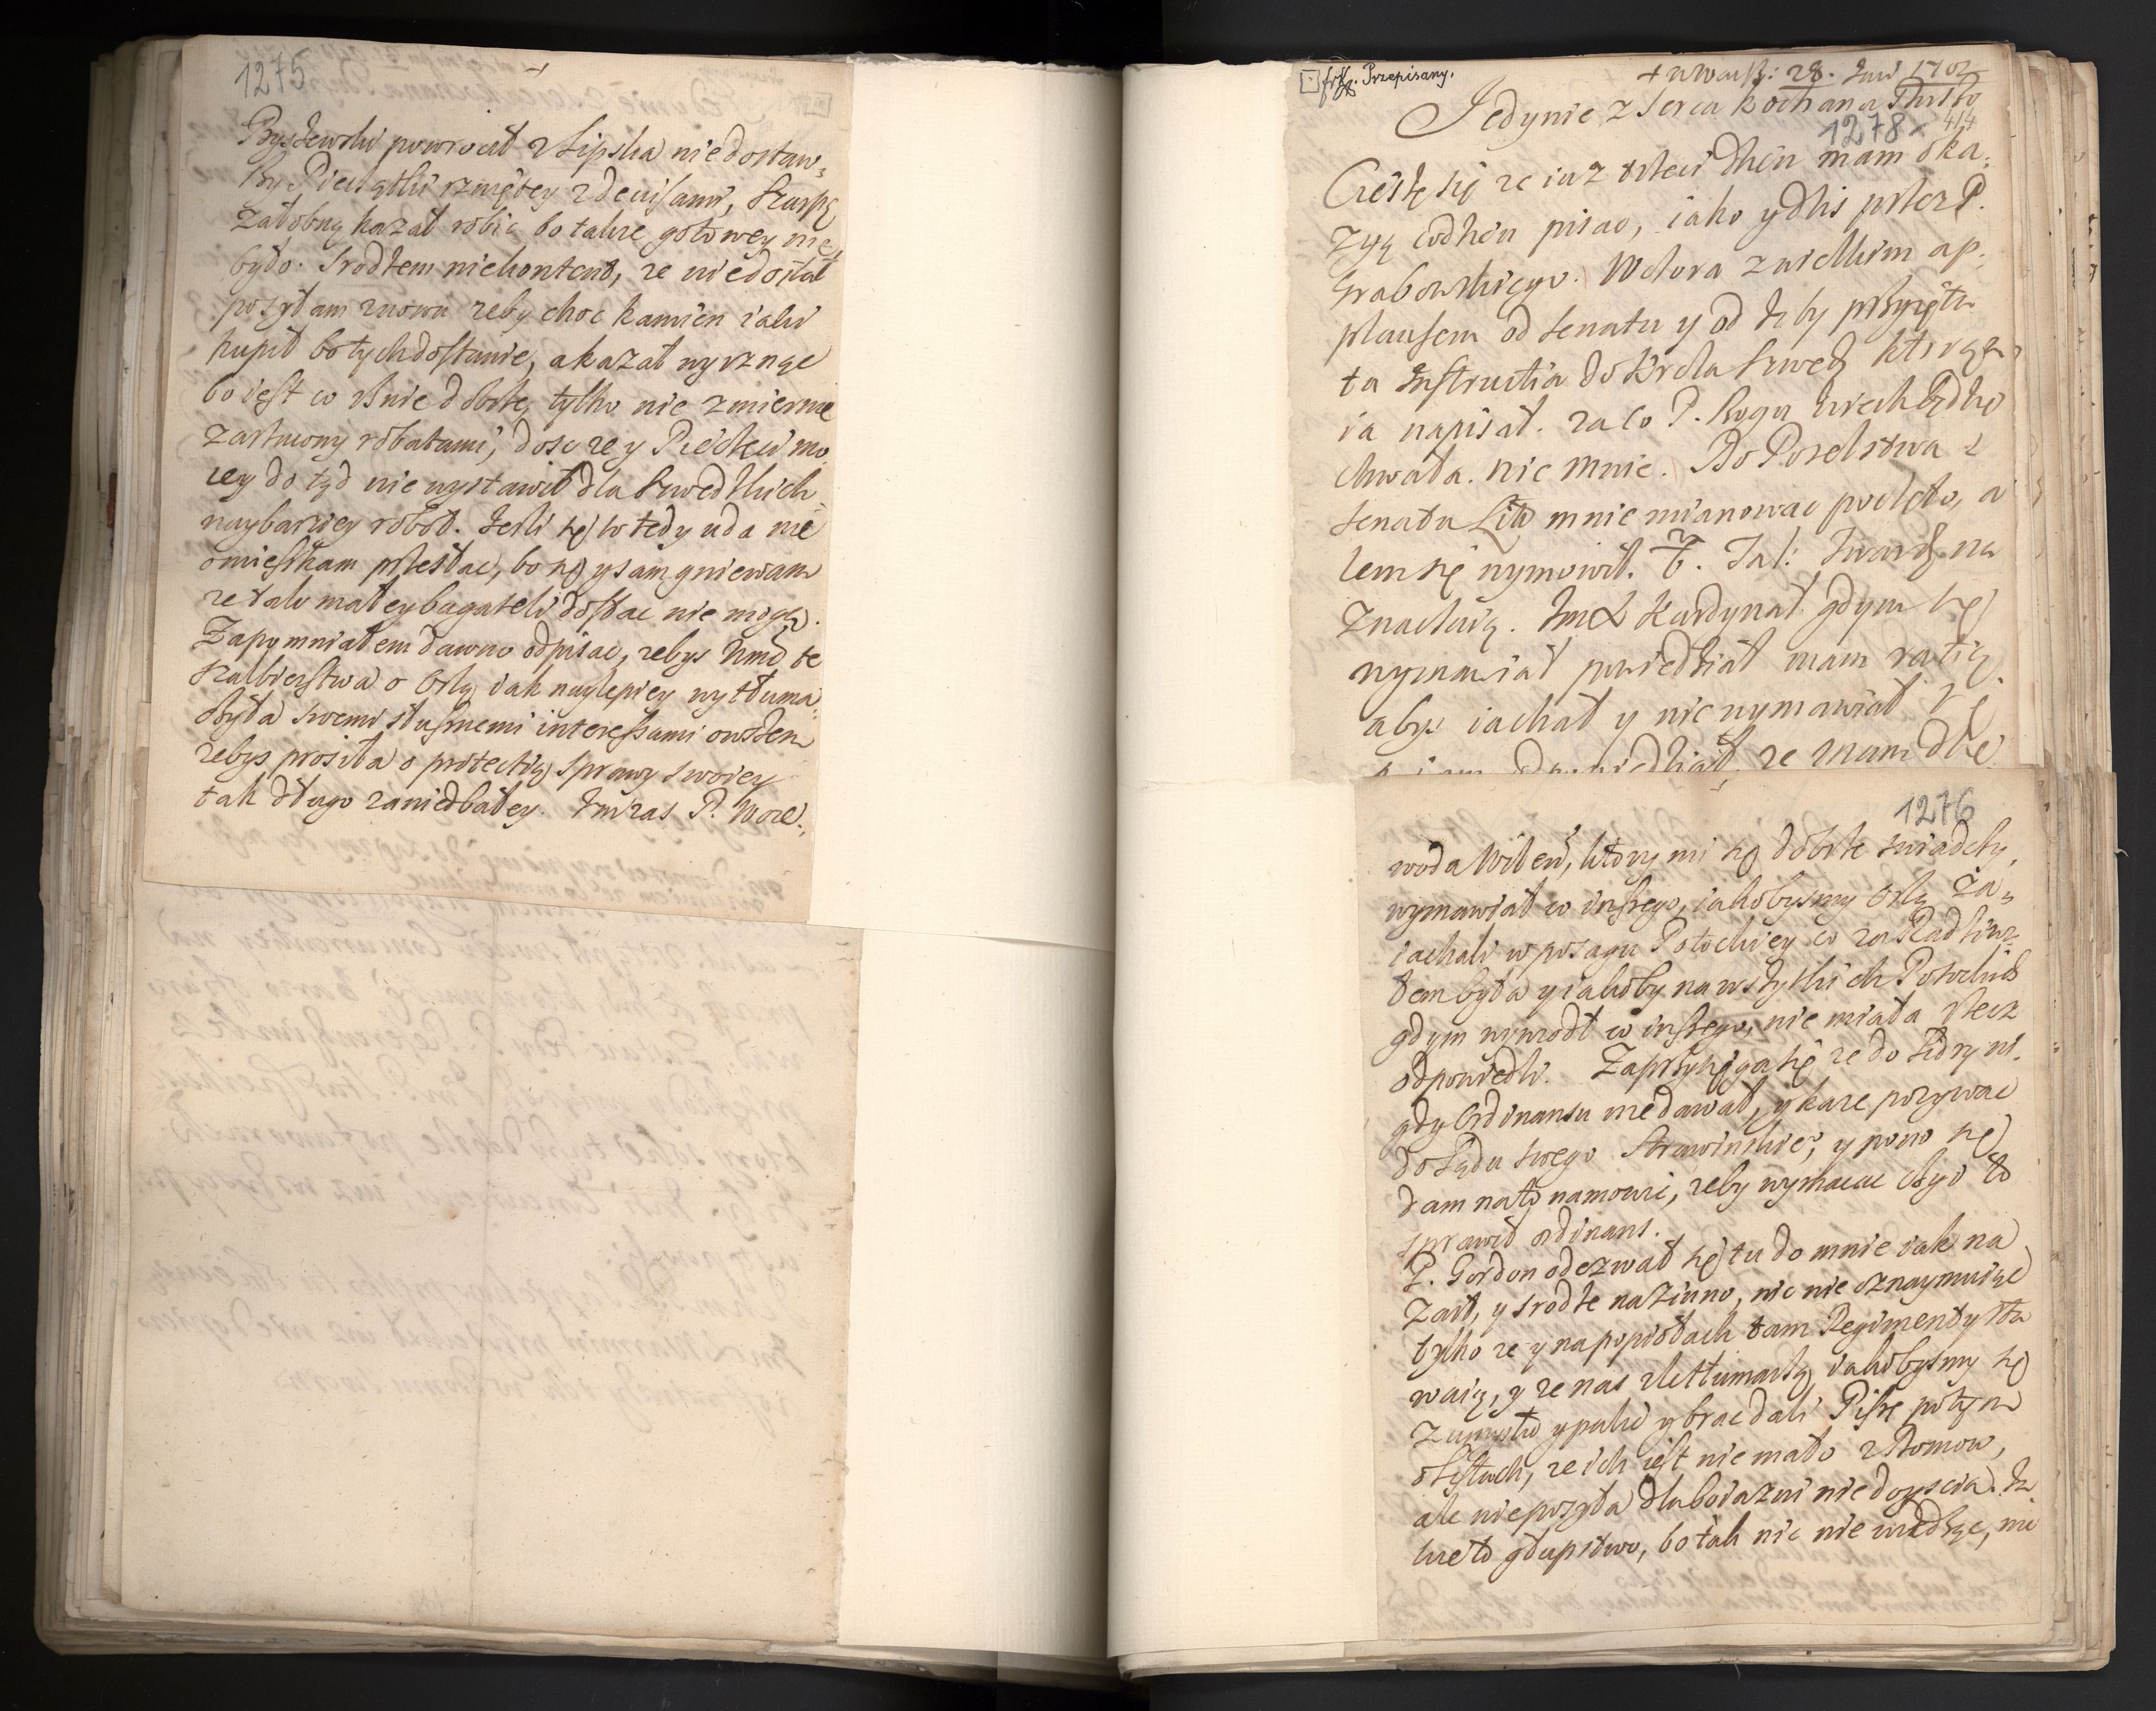 1275
powrocił z Lipska nie dostaw:
szy Pieczątki rzniętey z decisami,
załobną kazał robic bo takze gotowey nie
było. Srodzem niekontent, ze nie dostał
poszyłam znowu zeby choc kamien iaki
kupił bo tych dostanie, a kazał wyrznąc
bo iest co rznie dobrze, tylko niezmiernie
zarzucony robotami, dosc ze y Pieczęci mo
iey do tąd nie wystawił dla Szwedzkich
naybarziey robot. Jesli się to tedy uda nie
omieszkam przesłac, bo się y sam gniewam
ze tak małey bagateli dostac nie mogę.
Zapomniałem dawno odpisac, zebys Wmć te
Kalbierstwa o Orlą iak naylepiey wytłuma:
czyła swemi słusznemi interessami owszem
zebys prosiła o protectią sprawy swoiey
tak długo zaniedbałey. P. Woie:
frk. Przepisany.
+ z Warsz: 28. 1702
Jedynie z serca kochana
1278 414
Cieszę się ze iuz trzeci dzien mam oka:
zyą codzien pisac, iako y dzis przez P.
Grabowskiego. Wczora z wielkim ap:
plausem od senatu y od Izby przyięta
ta Instructia do Krola Szwedz ktorąm
ia napisał. za co P. Bogu niech będzie
chwała. nie mnie. Do Poselstwa z
senatu Lit mnie mianowac poczęto, a
lem się wymowił.
znaczaią. Imć X Kardynał gdym się
wymawiał powiedział mam racią
abys iachał y nie wymawiał się
ze mam
1276
woda Wilen, ktory mi się dobrze swiadczy,
wymawiał co inszego, iakobysmy Orlą Za,,
iachali w posagu Potockiey co za Radziwi:
łem była y iakoby na wszytkich Potockich
gdym wywodł co inszego, nie miała rzecz
odpowiedzi. Zaprzysięga się ze do Sidry ni:
gdy Ordinansu nie dawał, y kaze pozywac
do sądu swego y pono się
dam na to namowic, zeby wymacac czyi to
sprawił ordinans.
P. Gordon odezwał się tu do mnie iak na
zart, y srodze na zimno, nic nie oznaymuiąc
tylko ze y na popiołach tam Regimenty sta
waią, y ze nas zle tłumaczą iakobysmy się
z umysłu y palic y brac dali Pisze potym
o Listach, ze ich iest nie mało z Domow,
ale nie poszyła dla boiazni nie doyscia.
kie to głupstwo, bo tak nic nie wiedząc, nie